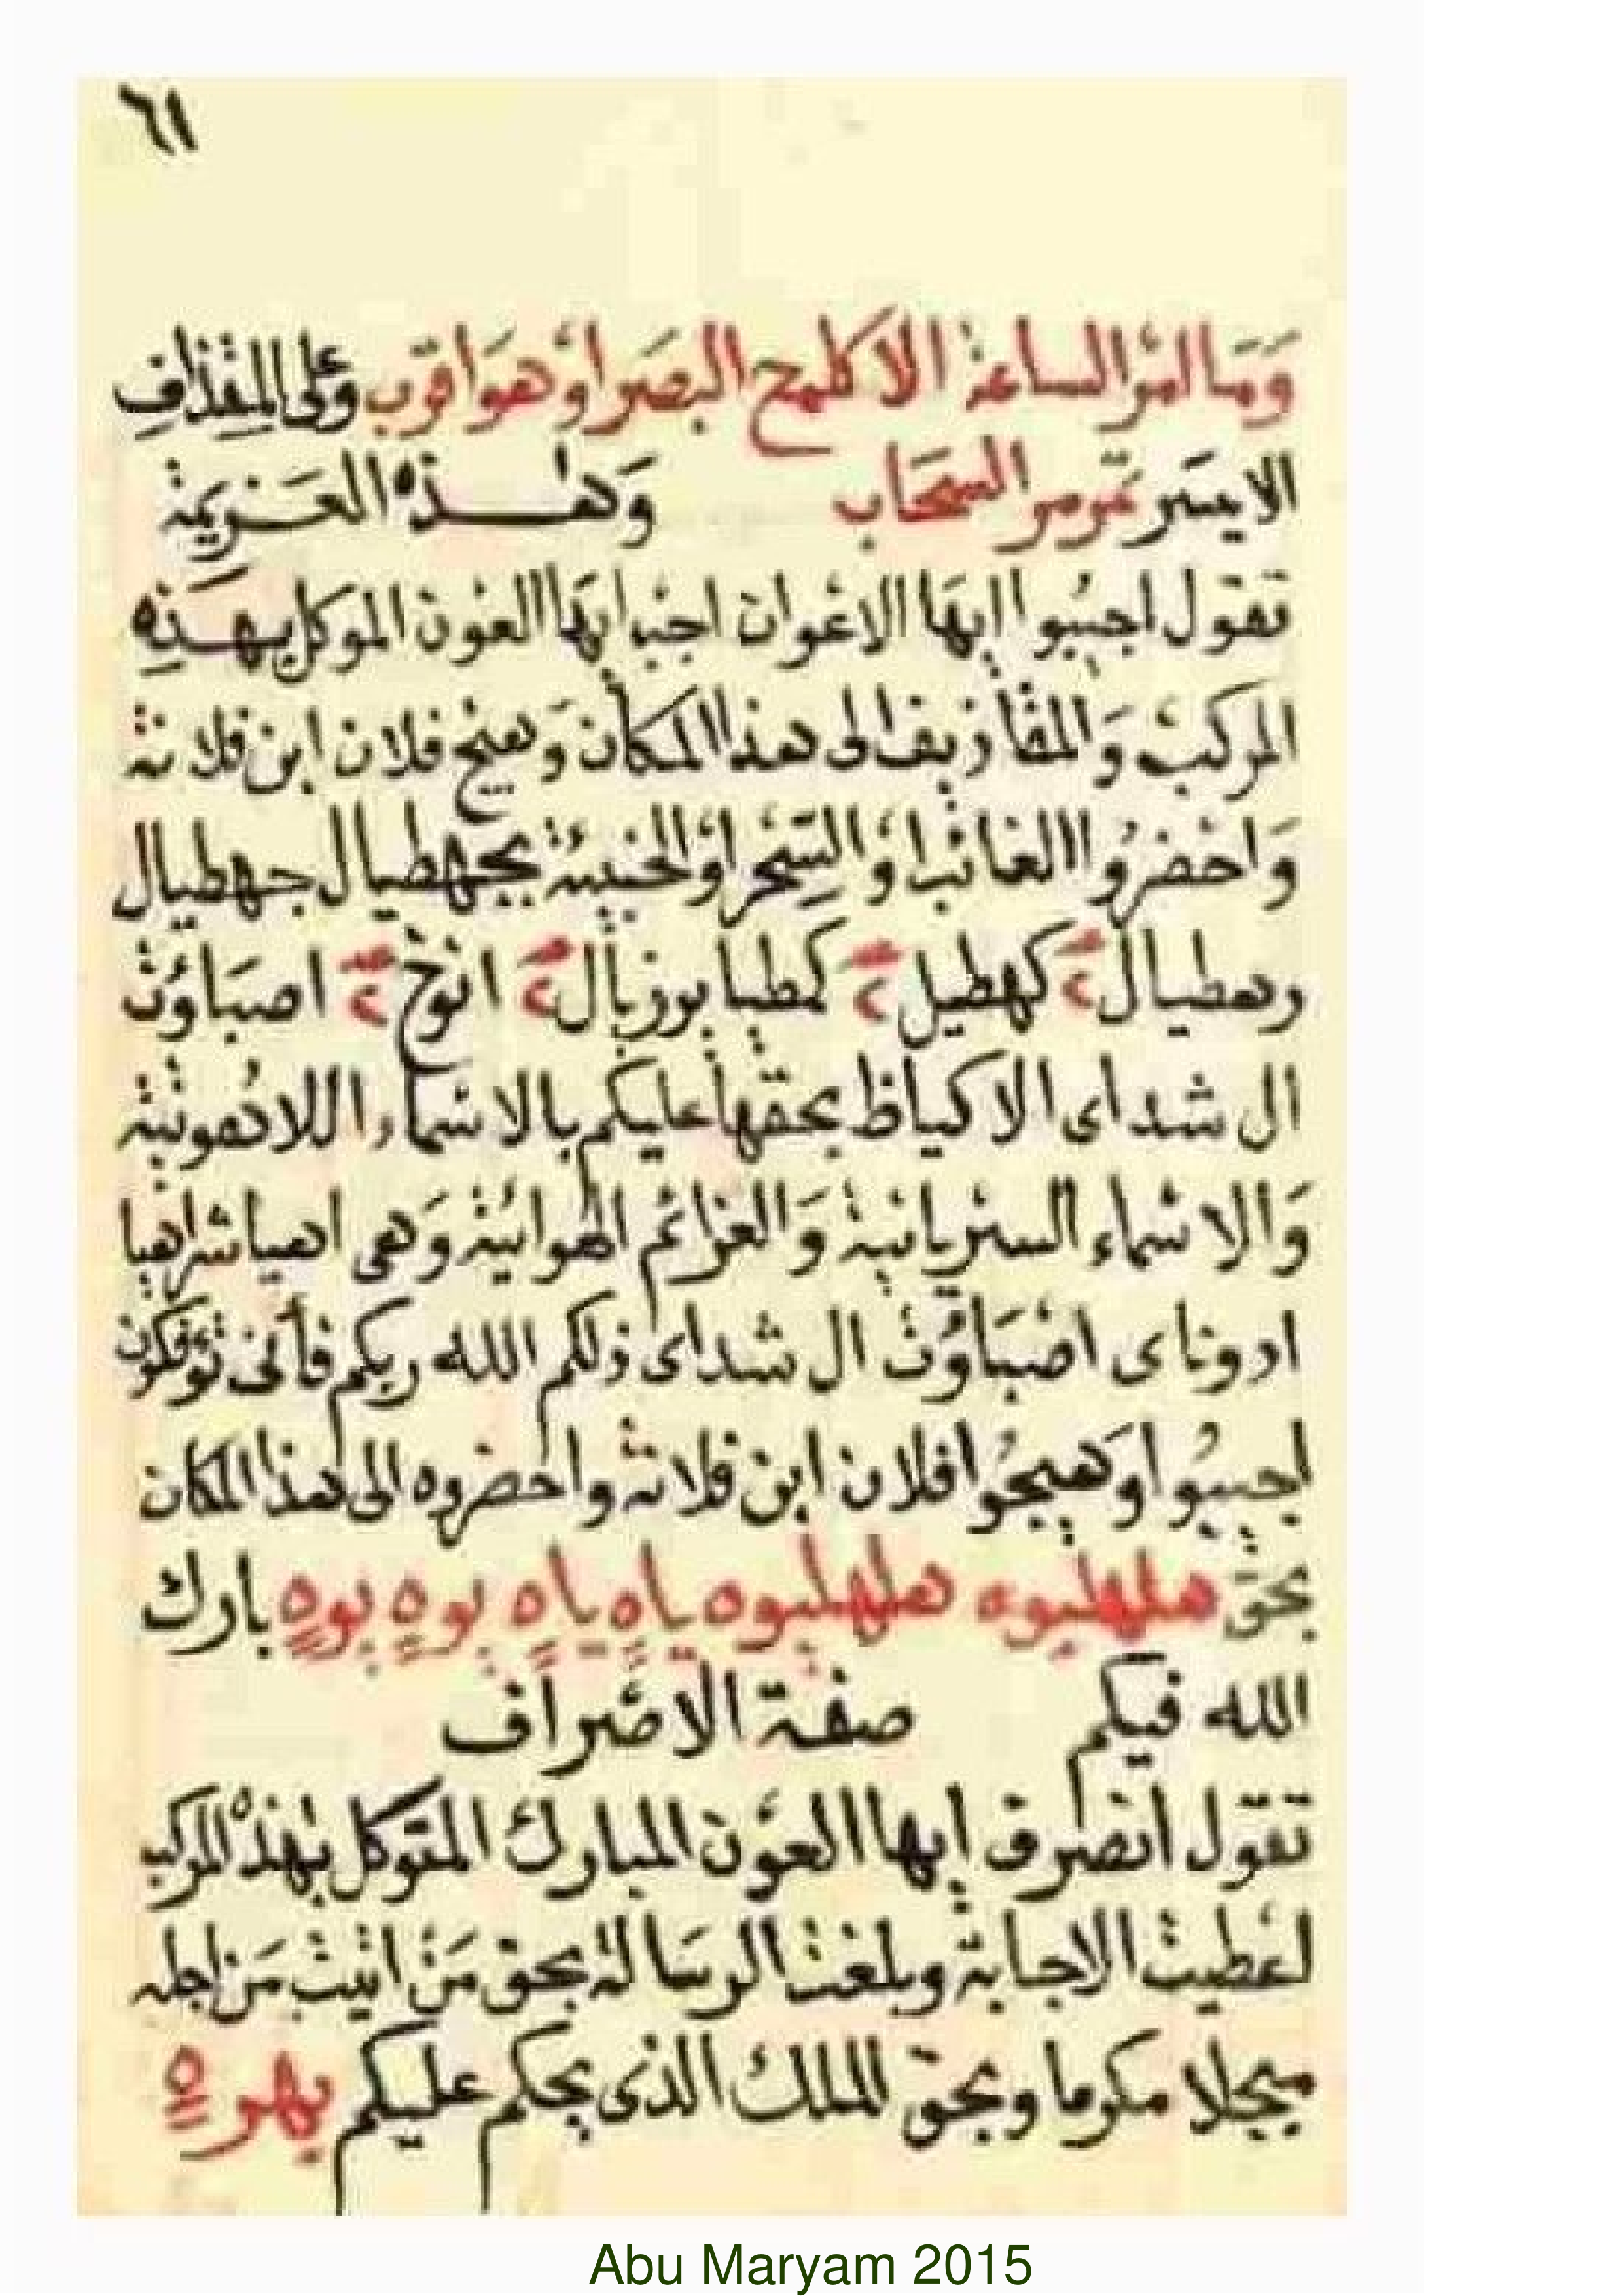 ٦١
وَمَا امر الساعة الا كلمح البصَر اوْ هوَ اقرب وعلى المقذاف
الايسَر تمر مر السَحَاب وَهـذه العَـزيمَة
تقول اجيبُوا ايهَا الاعْوان اجب ايهَا العوْن الموكل بهـَذِه
المركبْ وَالمقاذيف الى هذا المكان وَهيج فلان ابن فلانة
وَاحْضرُوا الغائب اوْ السِّحْر اوْ الخبيئة بجهطيال جهطيال
وهطيال ٢ كهطيل ٢ كمطيا بوزيال ٢ انوخ ٢ اصبَاوُت
ال شداى الاكياظ بحقها عليكم بالاسْماء اللاهُوتية
وَالاسْماء السرْيانية وَالعزائم الهوائية وَهى اهيا شراهيا
ادوناى اصْبَاوُت ال شداى ذلكم الله ربكم فأنى تؤفكون
اجيبُوا وَهيجُوا فلان ابن فلانة واحضروه الى هذا المكان
بحق هلهليوه هلهليوه ياه ياه يوه يوه بارك
الله فيكم صفة الاصْراف
تقول انصرف ايها العوْن المبارك المتوكل بهذه المركب
لعطيت الاجابة وبلغت الرسَالة بحق مَنْ اتيت مَن اجله
مبجلا مكرما وبحق الملك الذى يحكم عليكم بهره
Abu Maryam 2015